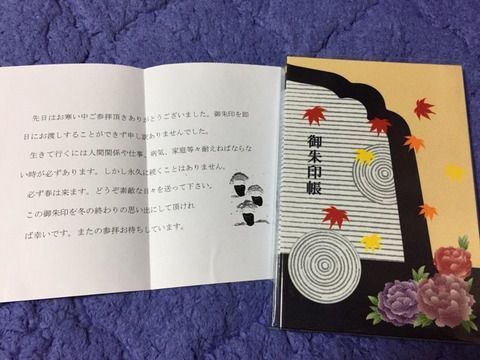 先日はお寒い中ご参拝頂きありがとうございました。御朱印を即
日にお渡しすることができず申し訳ありませんでした。
生きて行くには人間関係や仕事、病気、家庭等々耐えねばならな
い時が必ずあります。しかし永久に続くことはありません。
必ず春は来ます。どうぞ素敵な日々を送って下さい。
この御朱印を冬の終わりの思い出にして頂けれ
ば幸いです。またの参拝お待ちしています。
御朱印帳